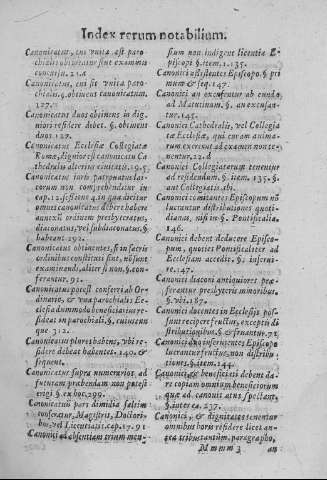 Index rerum notabilium.
Canonicatus, cui vnita est paro
chialis obtinetur sine examine
concursu. 21.a
Canonicatus, cui sit vnita paro-
chialis. q. obtinent canonicatum.
127.
Canonicatus duos obtinens in dig
niori residere debet. §. obtinent
duos. 127.
Canonicatus Ecclesiæ Collegiatæ
Romæ, dignior est canonicatu Ca
thedralis alterius ciuitatis. 19.5.
Canonicatus iuris patronatus lai-
corum non comprehenditur in
cap. 12. sessione 24. in qua dicitur
annexi ordinem presbyteratus,
diaconatus, vel subdiaconatus. §
habeant. 292.
Canonicatus obtinentes, si in sacris
ordinibus constituti sint, nō sunt
examinandi, aliter si non. §. con-
ferantur. 91.
Canonicatus potest conferri ab Or-
dinario, & vna parochialis: Ec-
clesia dummodo beneficiatus re-
sideat in parochiali. §. cuiuscun
que. 312.
Canonicatus plures habens, vbi re-
sidere debeat habentes. 140. &
sequent.
Canonicatus supra numerarios, ad
futuram præbendam non potest
erigi. §. ex hoc. 299.
Canonicatuũ pars dimidia saltim
conferatur, Magistris, Doctori-
bus, vel Licentiatis. cap. 17. 91
Canonici ad absentiam trium men-
sium non indigent licentia E-
piscopi. §. item. 1. 135.
Canonici assistentes Episcopo. § pri
mum & seq. 147.
Canonici an excusentur ab eundo
ad Matutinum. §. an excusan-
tur. 145.
Canonici Cathedralis, vel Collegia
tæ Ecclesiæ, qui curam animarum
exercent ad examen nō tene-
nentur. 22. d
Canonici Collegiatarum tenentur
ad residendum. §. item. 135. §.
aut Collegiatis. ibi.
Canonici comitantes Episcopum nō
lucrantur distributiones quoti-
dianas, nisi in §. Pontificalia.
146.
Canonici debent deducere Episco-
pum, quoties Pontificaliter ad
Ecclesiam accedit. §. inserui-
re. 147.
Canonici diaconi antiquiores præ-
ferantur presbyteris minoribus.
§. vbi. 187.
Canonici docentes in Ecclesijs pos-
sunt recipere fructus, exceptis di
stributionibus. § & fruantur. 71.
Canonici duo inseruientes Episcopo
lucrantur fructus, non distribu-
tiones. §. item. 144.
Canonici & beneficiati debent da-
re copiam omnium beneficiorum
quæ ad canonicatus spectant.
§. inter ea. 237.
Canonici, & dignitates tenentur
omnibus horis residere licet an-
tea tribustantum. paragrapho,
Mmmm 3 an